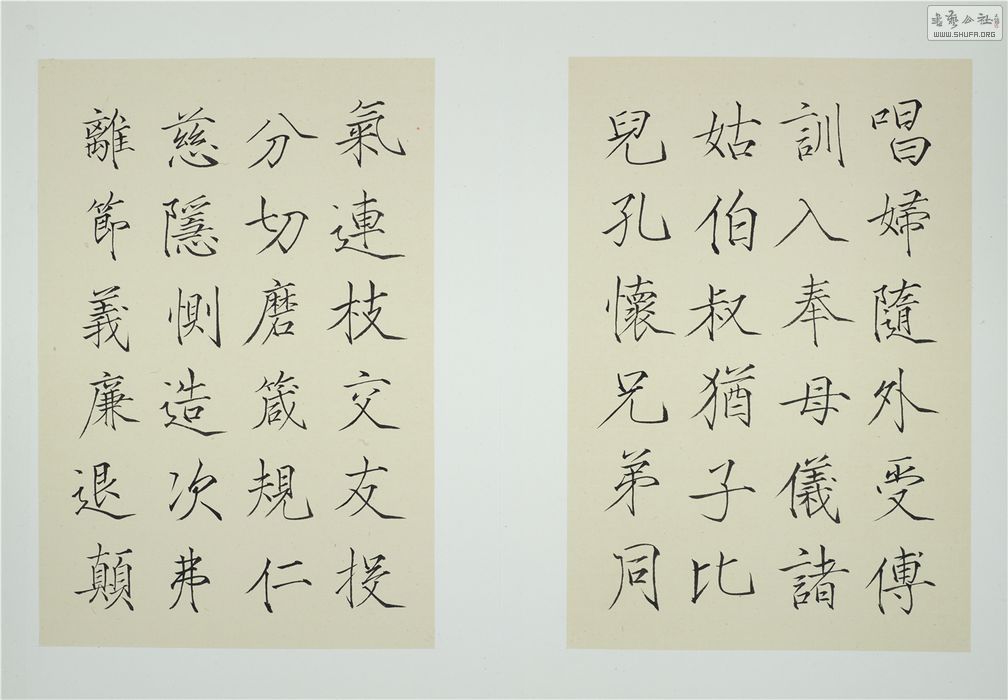 唱婦隨外受傅
訓入奉母儀諸
姑伯叔猶子比
兒孔懷兄弟同
氣連枝交友投
分切磨箴規仁
慈隱惻造次弗
離節義廉退顛
書藝公社
WWW.SHUFA.ORG